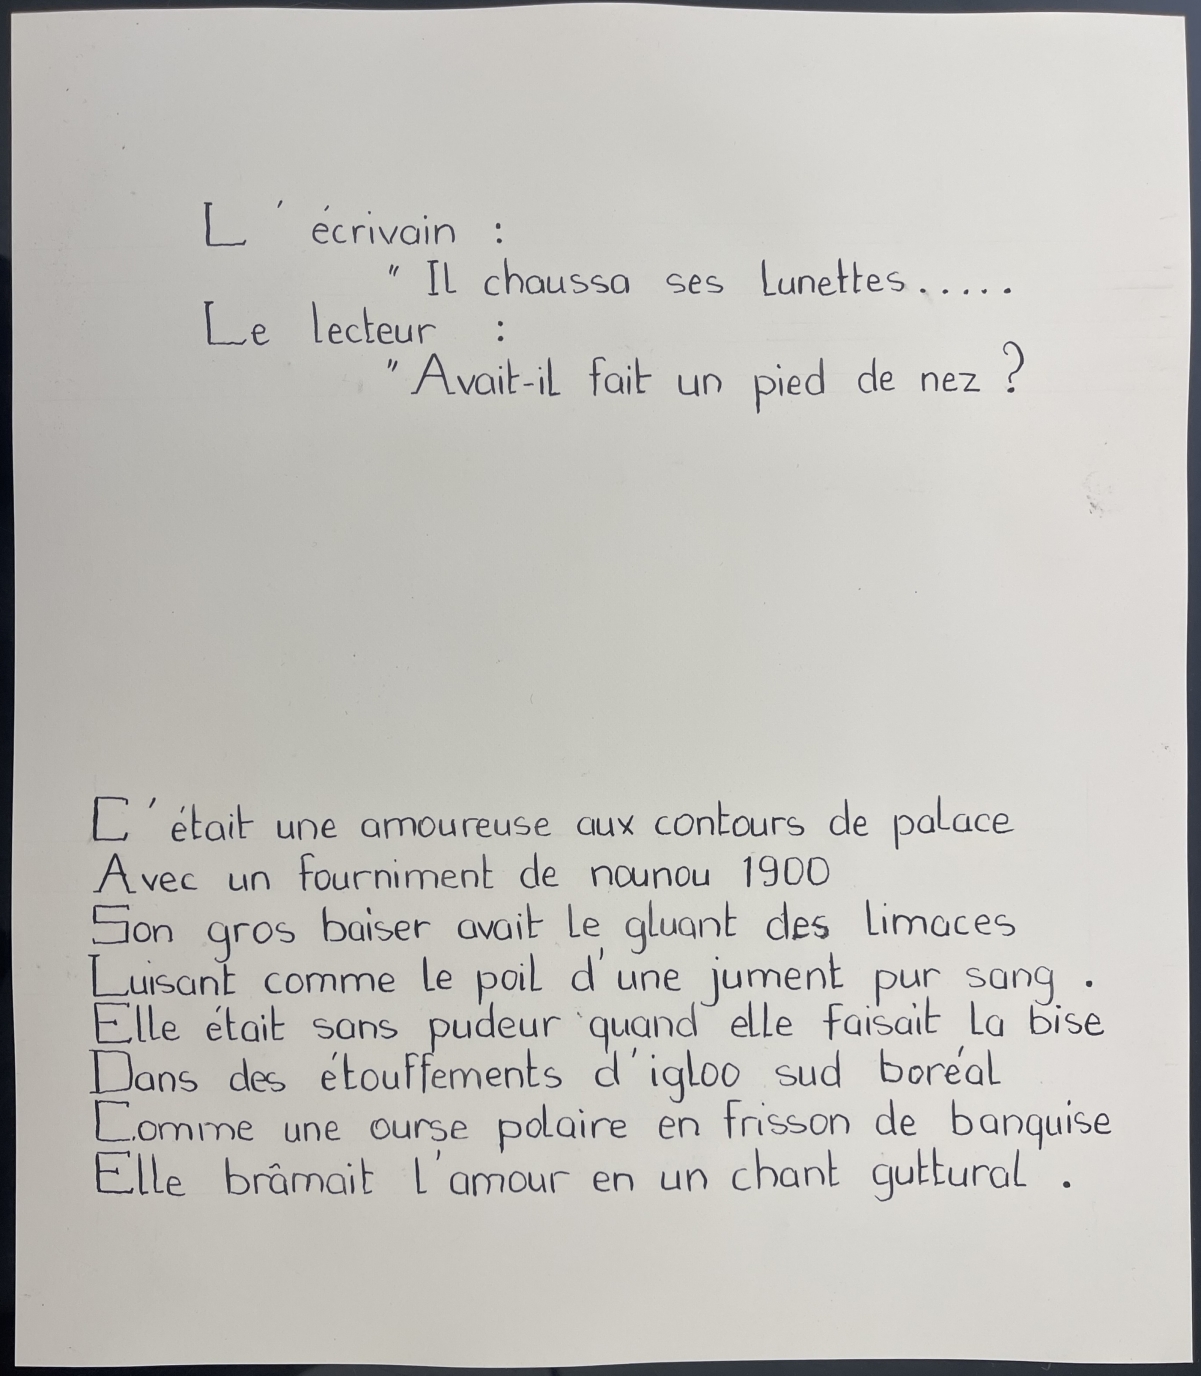 L'écrivain :
" Il chaussa ses lunettes.....
Le lecteur :
" Avait-il fait un pied de nez ?
C'était une amoureuse aux contours de palace
Avec un fourniment de nounou 1900
Son gros baiser avait le gluant des limaces
Luisant comme le poil d'une jument pur sang .
Elle était sans pudeur quand elle faisait la bise
Dans des étouffements d'igloo sud boréal
Comme une ourse polaire en frisson de banquise
Elle brâmait l'amour en un chant guttural .